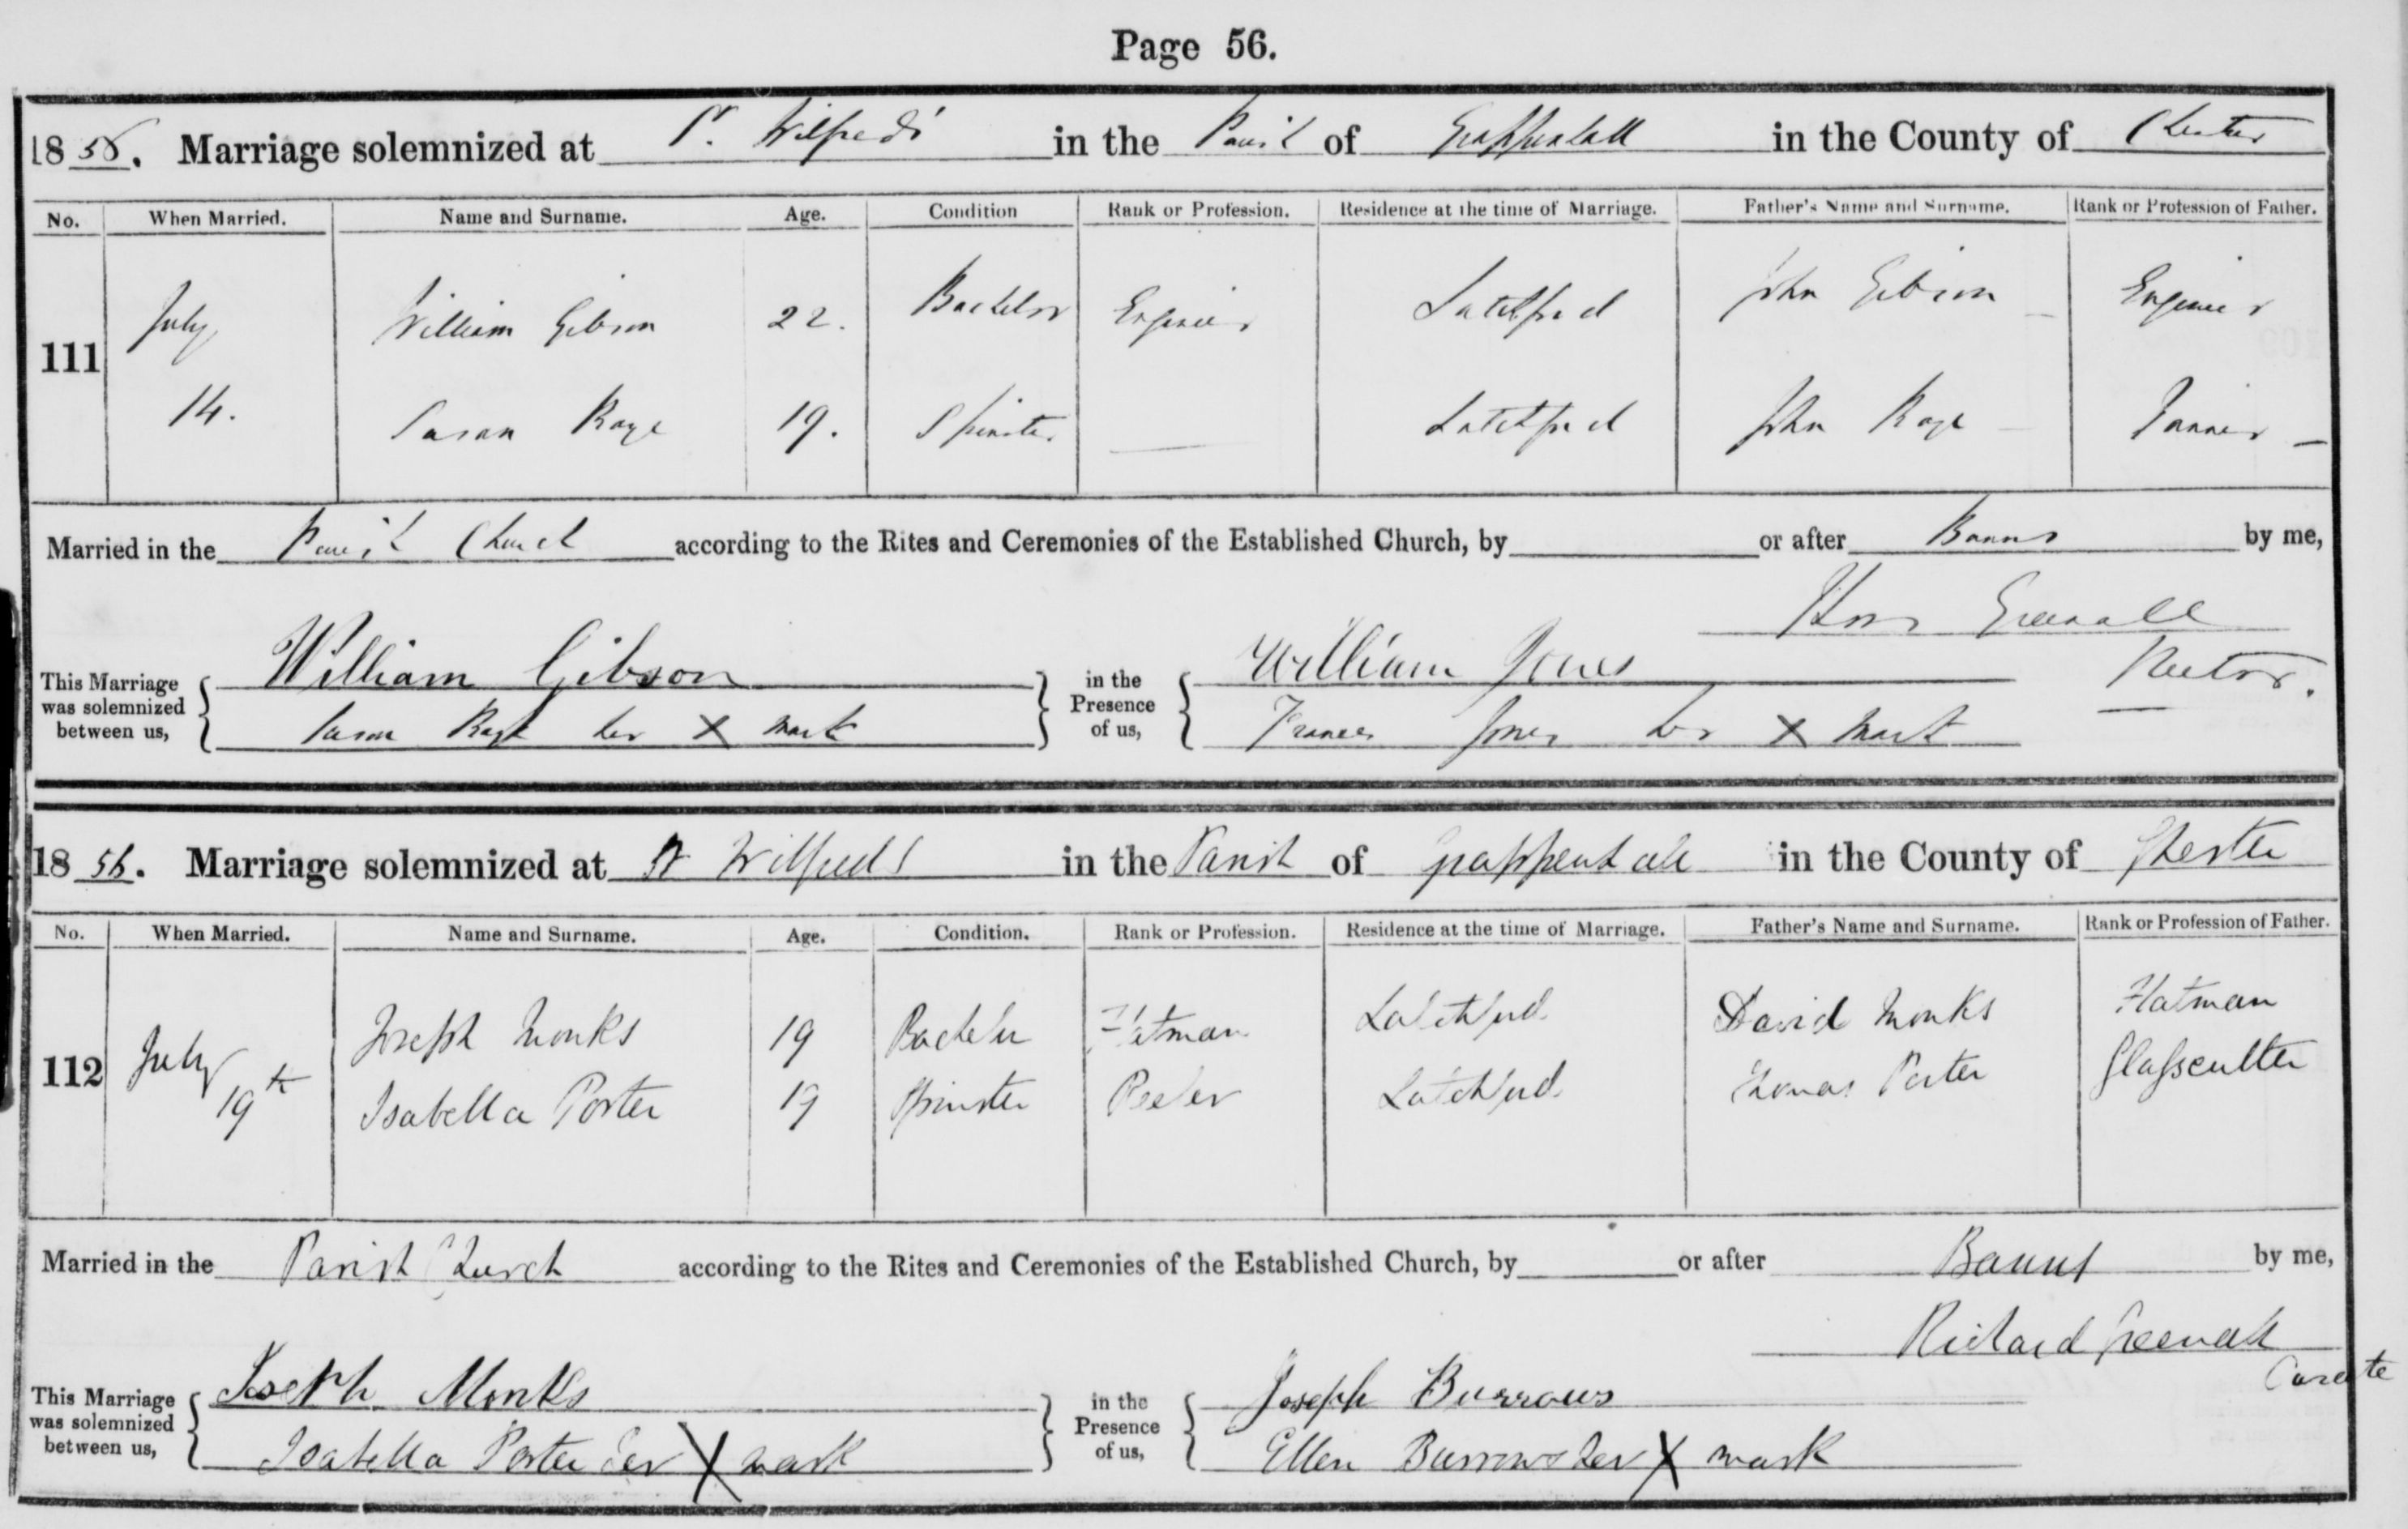 Page 56.
1856. Marriage solemnized at St. Wilfred's in the Parish of Grappenhall in the County of Chester
No. When Married. Name and Surname. Age. Condition Rank or Profession. Residence at the time of Marriage. Father's Name and Surname. Rank or Profession of Father.
July William Gibson 22. Bachelor Engineer Latchford John Gibson Engineer
111
14. Susan Kaye 19. Spinster — Latchford John Kaye Tanner
Married in the Parish Church according to the Rites and Ceremonies of the Established Church, by or after Banns by me,
Thos Greenall
Rector.
This Marriage was solemnized between us, William Gibson
Susan Kaye her X mark
in the Presence of us, William Jones
Frances Jones her X mark
1856. Marriage solemnized at St Wilfred's in the Parish of Grappenhall in the County of Chester
No. When Married. Name and Surname. Age. Condition. Rank or Profession. Residence at the time of Marriage. Father's Name and Surname. Rank or Profession of Father.
Joseph Monks 19 Bachelor Flatman Latchford David Monks Flatman
112 July 19th
Isabella Porter 19 Spinster Reeler Latchford Thomas Porter Glasscutter
Married in the Parish Church according to the Rites and Ceremonies of the Established Church, by or after Banns by me,
Richard Greenall
Curate
This Marriage was solemnized between us, Joseph Monks
Isabella Porter her X mark
in the Presence of us, Joseph Burrows
Ellen Burrows her X mark